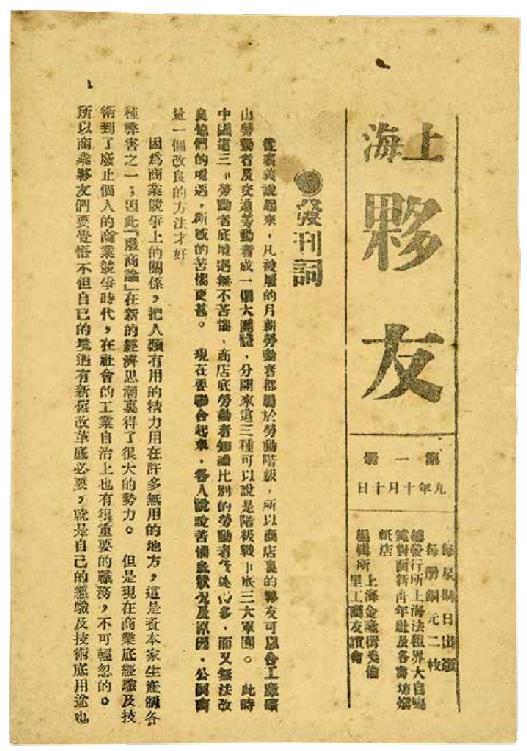 上海
夥友
第一號
九年十月十日
每星期日出版
每册銅元二枚
總發行所上海法租界大自鳴
鐘對面新青年社及各書坊
紙店
編輯所上海
里工商友誼會
發刊詞
從廣義說起來，凡被雇的月薪勞動者都屬於勞動階級，所以商店裏的夥友可以合工廠礦
山勞動者及交通勞動者成一個大團體，分開來這三種可以說是階級戰爭底三大軍團。 此時
中國這三種勞動者底境遇無不苦惱，商店底勞動者知識比別的勞動者多，而又無法改
良他們的境遇，所感的苦惱更甚。 現在要聯合起來，各人說說苦惱底狀況及原因，公同商
量一個改良的方法才好
因爲商業競爭上的關係，把人類有用的精力用在許多無用的地方，這是資本家生產制各
種弊害之一；因此「廢商論」在新的經濟思潮裏得了很大的勢力。 但是現在商業底經驗及技
術到了廢止個人的商業競爭時代，在社會的工業自治上也有很重要的職務，不可輕忽的。
所以商業夥友們要覺悟不但自己的境遇有新舊改革底必要，就是自己的經驗及技術底用途也